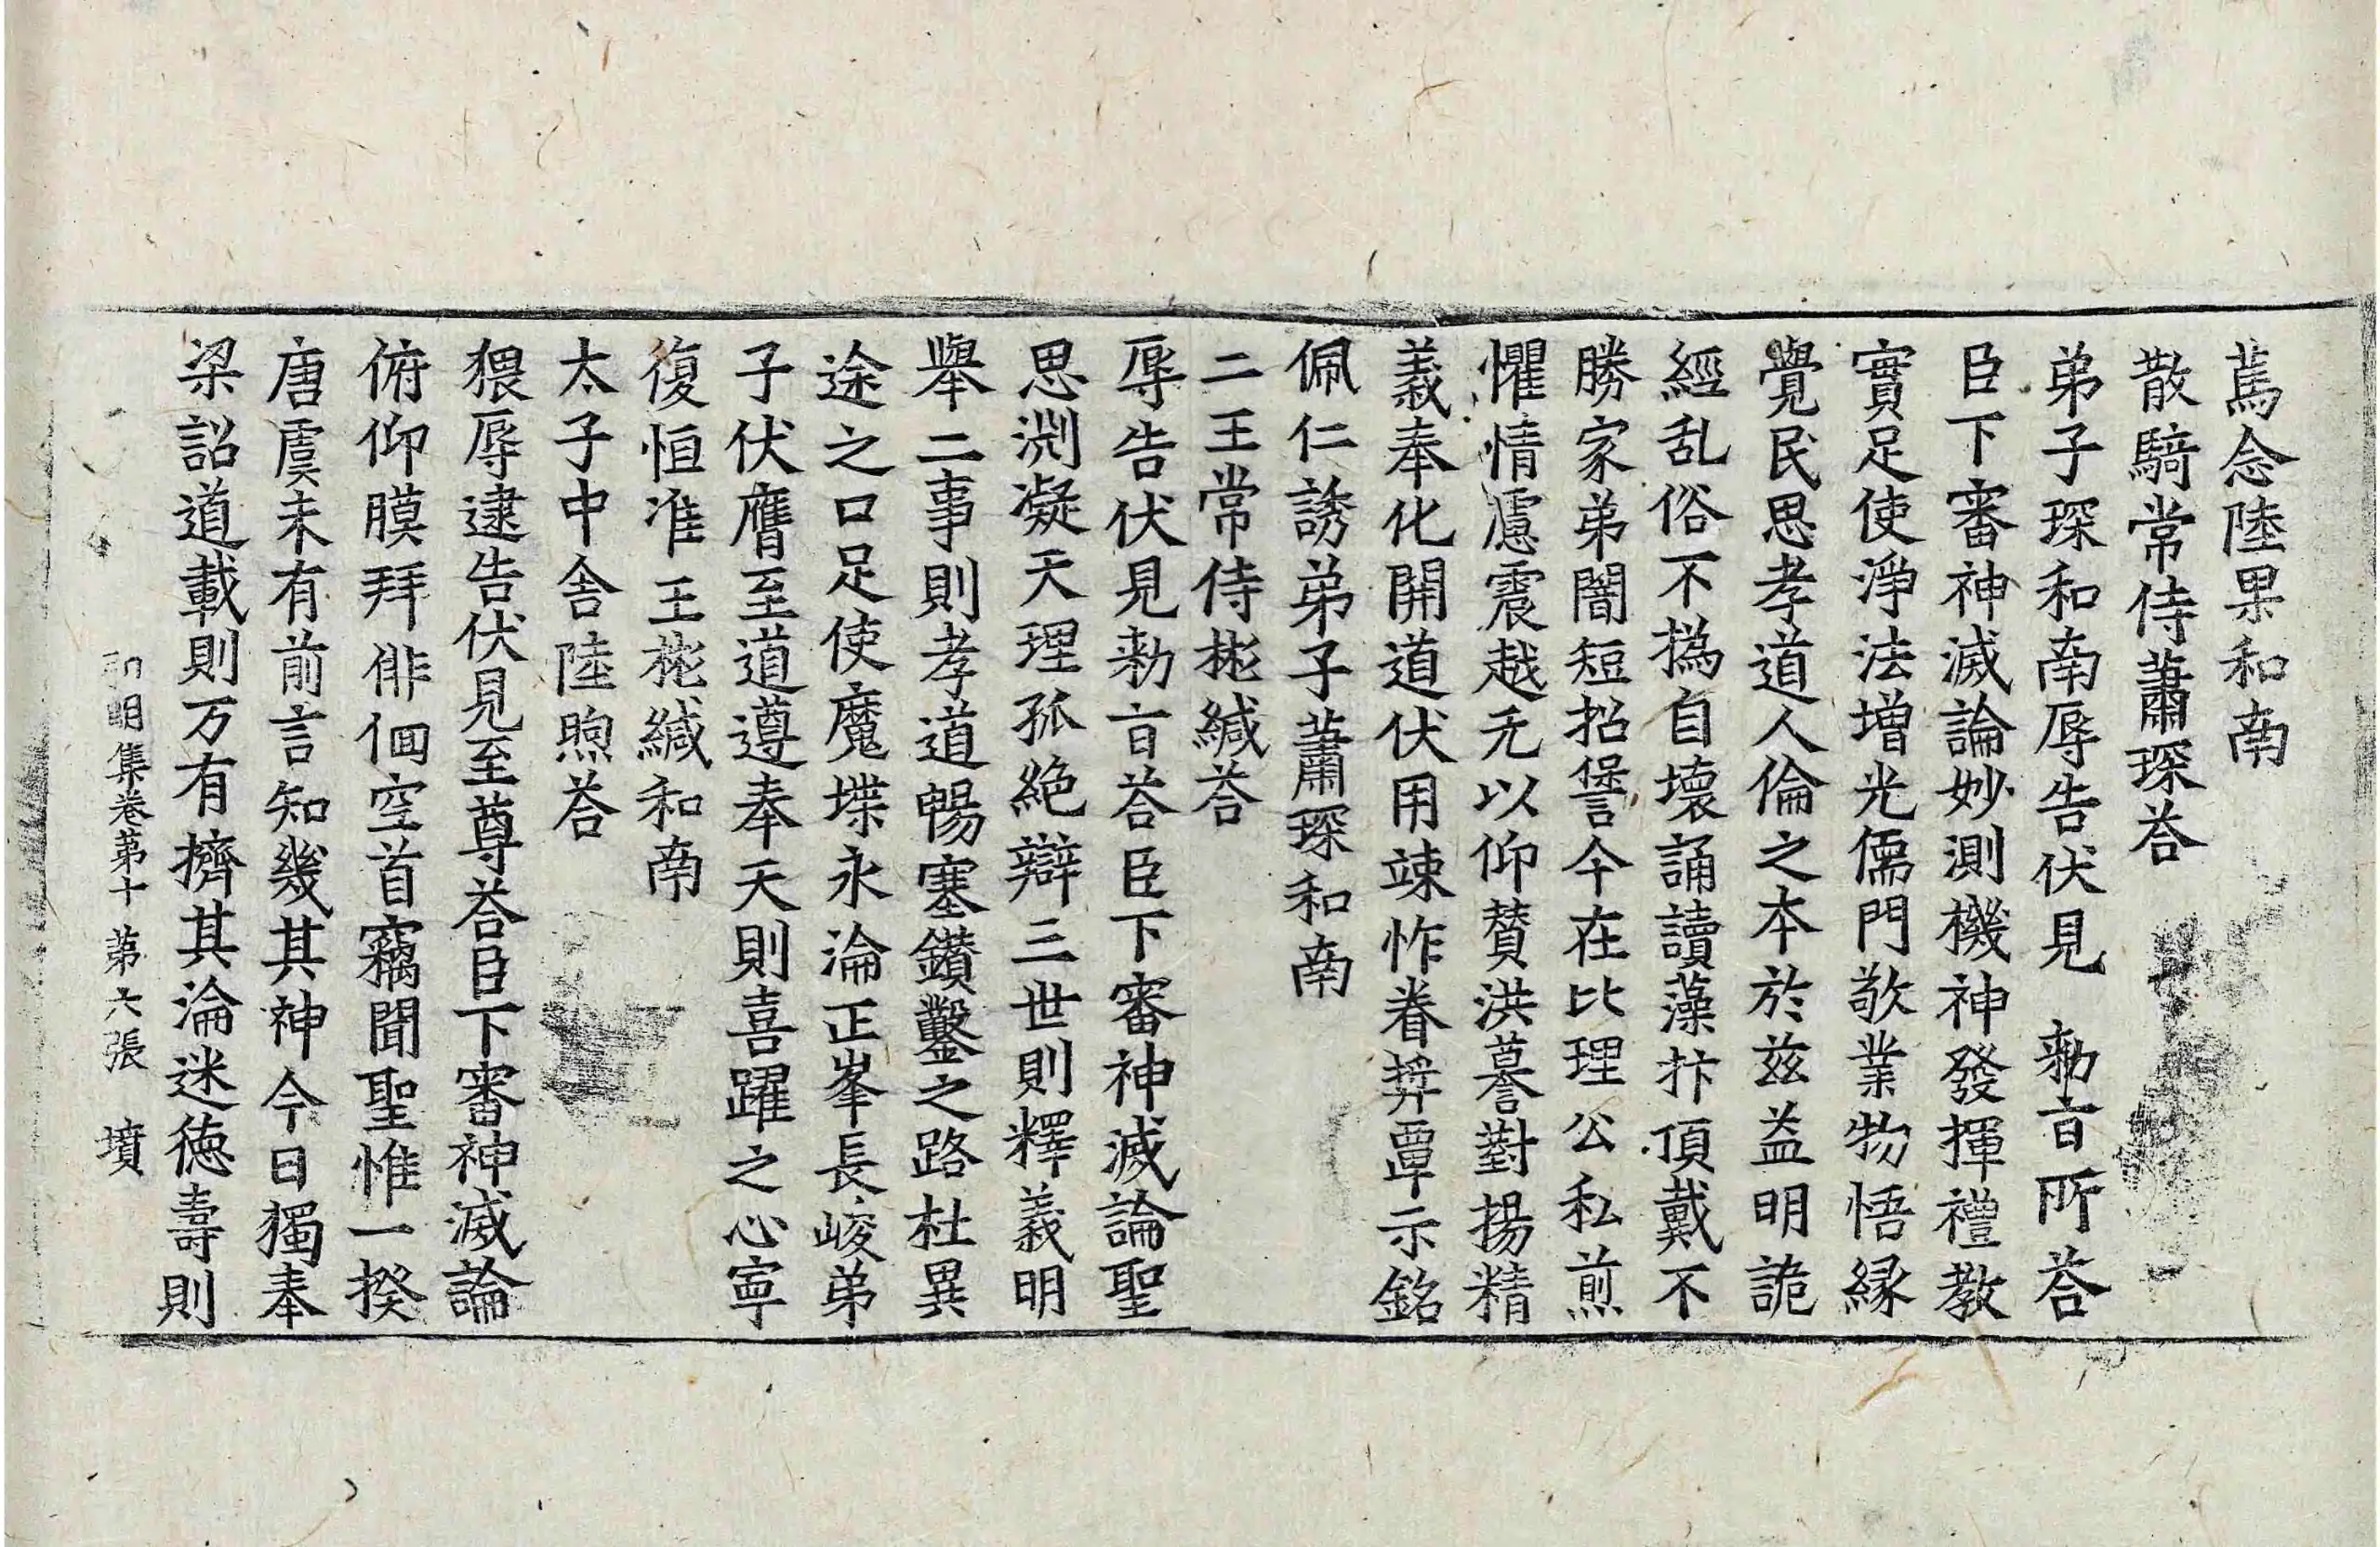 蔿念陸杲和南
散騎常侍蕭琛荅
弟子琛和南辱告伏見　勑旨所荅
臣下審神滅論妙測機神發揮禮教
實足使淨法增光儒門敬業物悟縁
覺民思孝道人倫之本於兹益明詭
經乱俗不撝自壞誦讀藻抃頂戴不
勝家弟闇短招𠎝今在比理公私煎
懼情慮震越无以仰賛洪謩對揚精
義奉化開道伏用竦怍眷奬覃示銘
佩仁誘弟子蕭琛和南
二王常侍彬緘荅
辱告伏見勑旨荅臣下審神滅論聖
思淵凝天理孤絶辯三世則釋義明
舉二事則孝道暢塞鑽鑿之路杜異
途之口足使魔堞永淪正峯長峻弟
子伏膺至道遵奉天則喜躍之心寧
復恒准王彬緘和南
太子中舍陸煦荅
猥辱逮告伏見至尊荅臣下審神滅論
俯仰膜拜俳佪空首竊聞聖惟一揆
唐虞未有前言知幾其神今日獨奉
梁詔道載則万有擠其淪迷德壽則
弘明集卷第十　第六張　墳